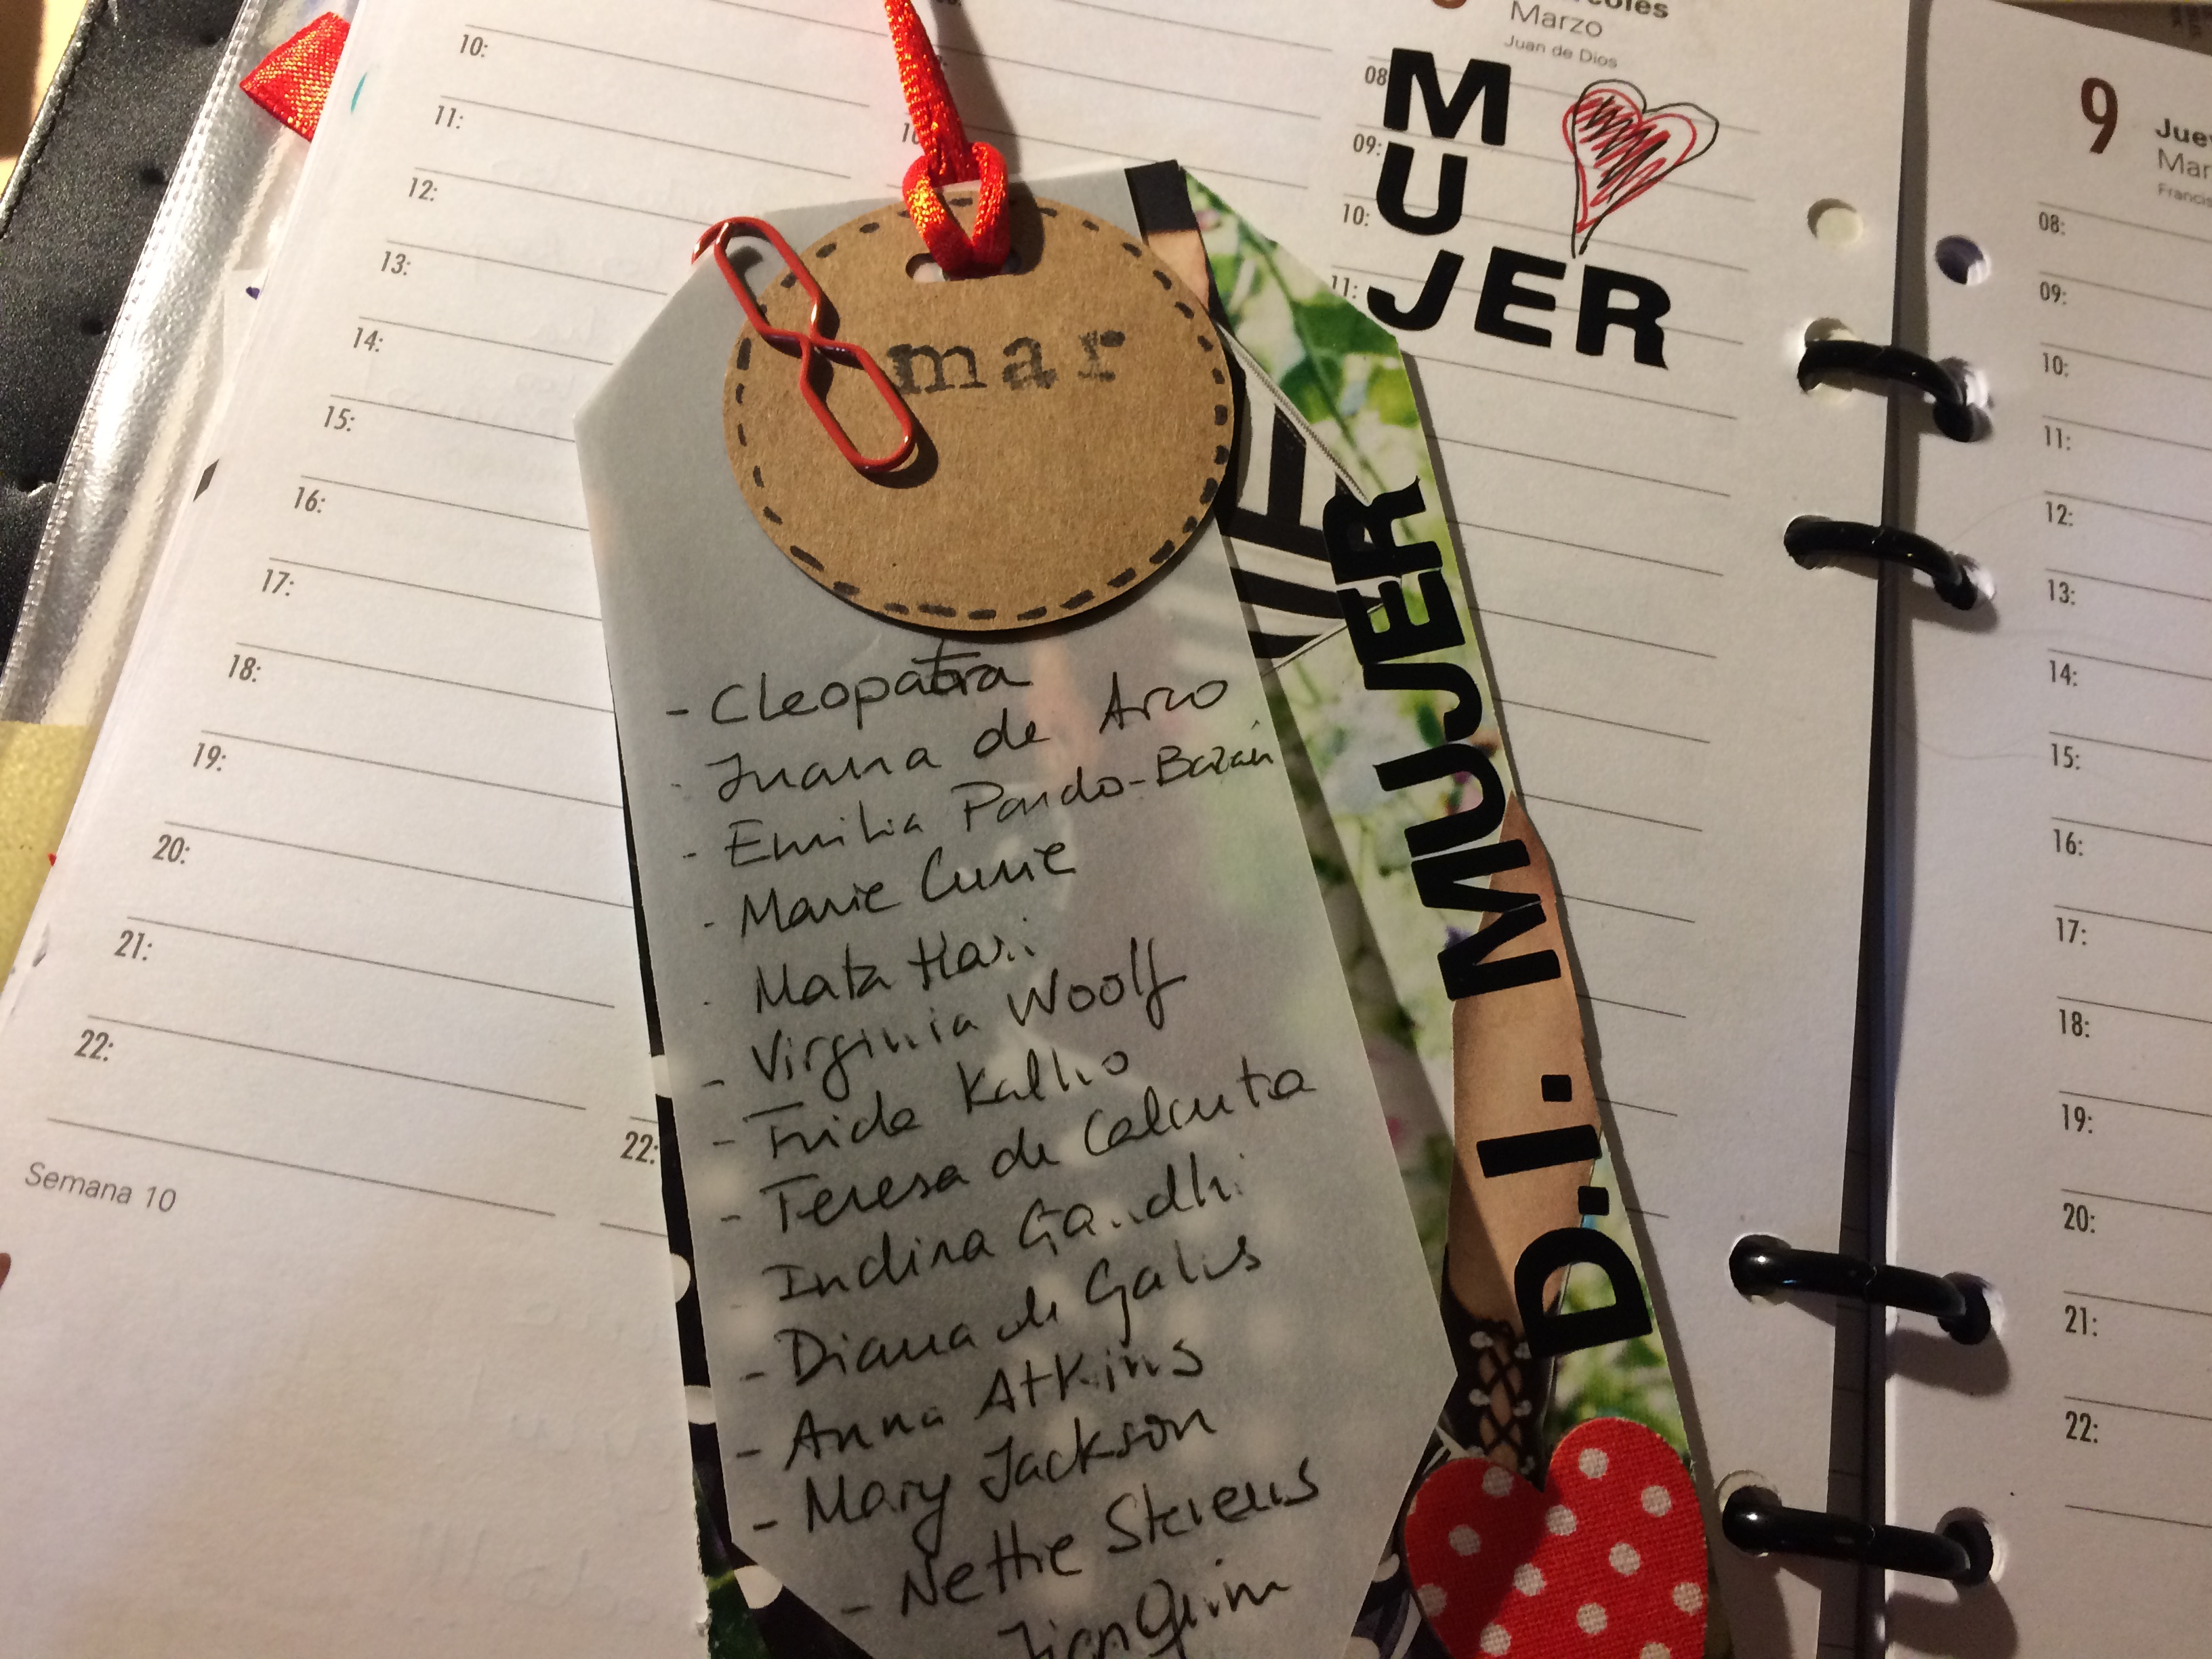 10:
11:
12:
13:
14:
15:
16:
17:
18:
19:
20:
21:
22:
Semana 10
22:
Marzo
Juan de Dios
08
09:
10:
11:
MUJER
mar
- Cleopatra
- Juana de Arco
- Emilia Pardo-Bazán
- Marie Curie
- Mata Hari
- Virginia Woolf
- Frida Kalho
- Teresa de Calcuta
- Indira Gandhi
- Diana de Gales
- Anna Atkins
- Mary Jackson
- Nettie Stevens
D.I. MUJER
9
08:
09:
10:
11:
12:
13:
14:
15:
16:
17:
18:
19:
20:
21:
22: